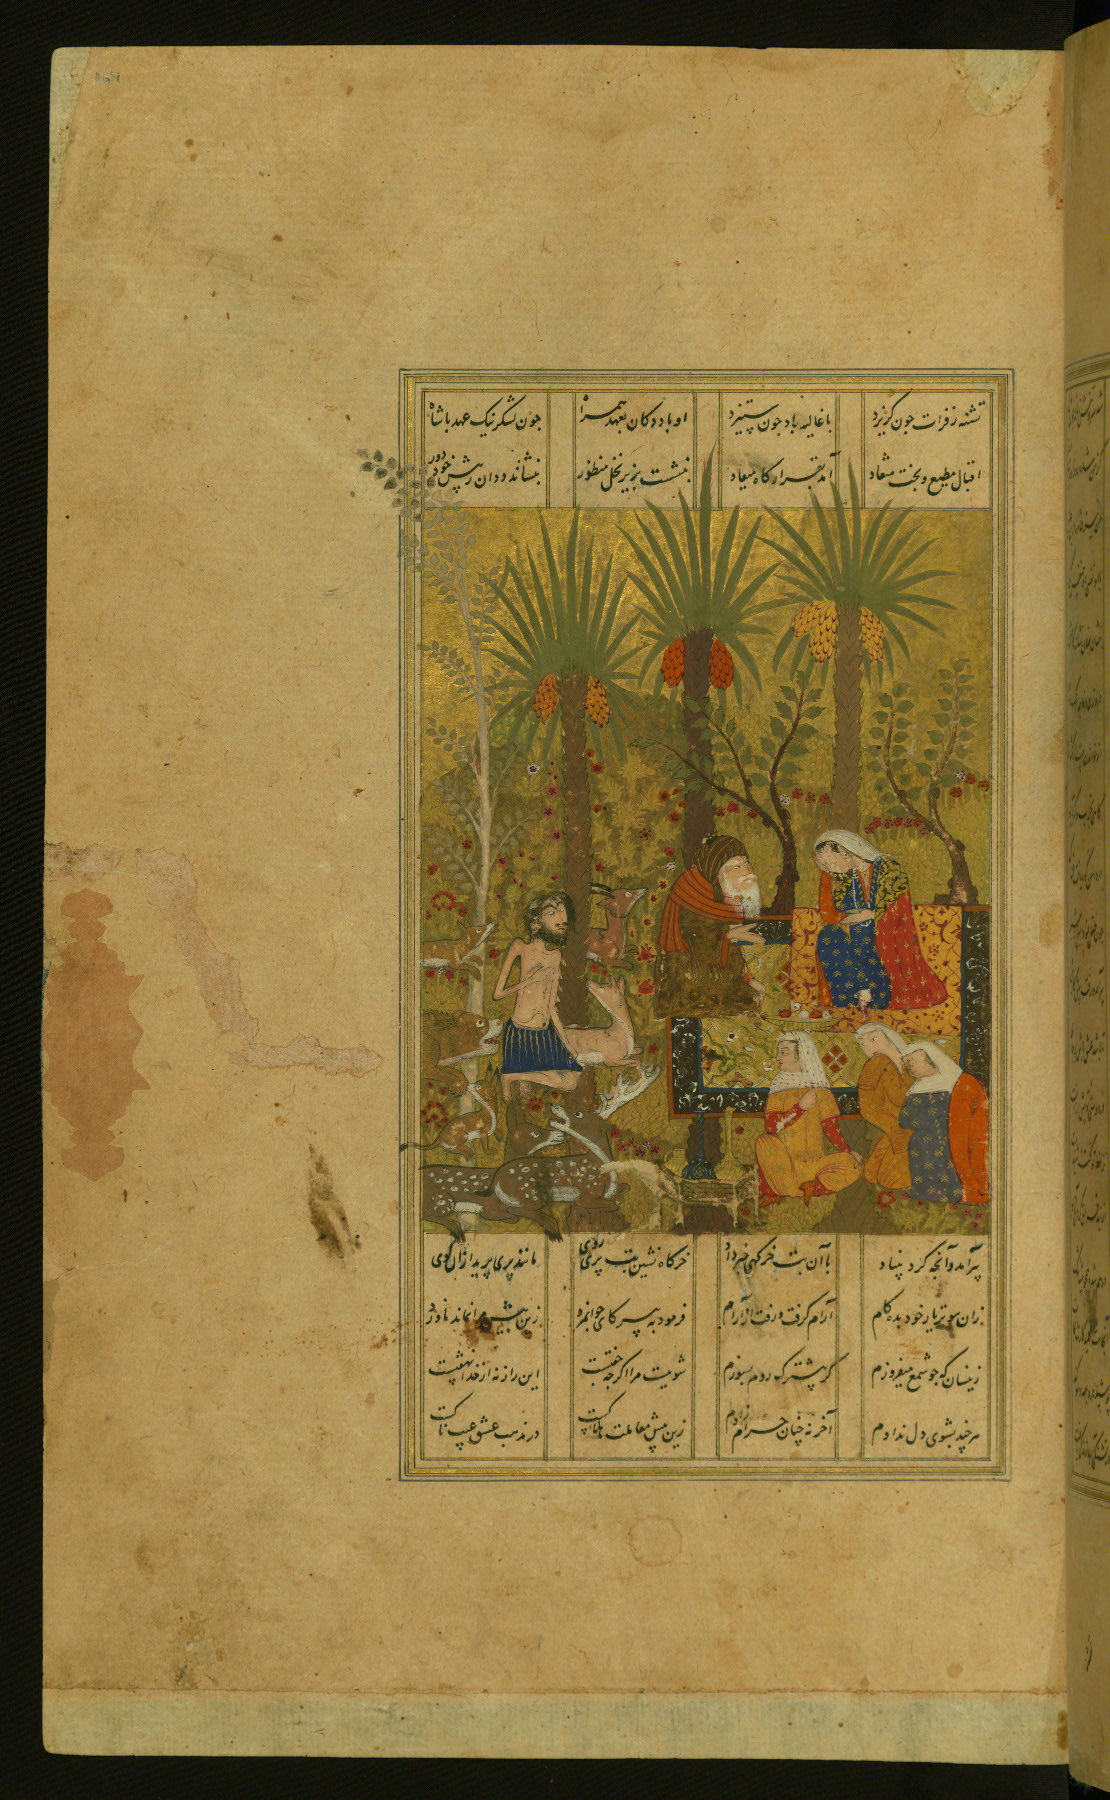 تشنه ز فرات چون گریزد
با غالیه باد چون ستیزد
او با ددکان بعهد همراه
چون لشکر نیک عهد با شاه
اقبال مطیع و بخت منقاد
آمد بقرارکاه میعاد
بنشست بزیر نخل منظور
بنشاند ددان ز پیش خود دور
پیر آمد و آنچه کرد بنیاد
با آن بت خرکهی خبر داد
خرکاه نشین بت پری روی
مانند پری پرید از ان کوی
زان سوتر یار خود بده کام
آرام کرفت و رفت از آرام
فرمود به پیر کای جوانمرد
زین بیش مرا نماند ناورد
زینسان که چو شمع میفروزم
کر پیشترک روم بسوزم
شویت مرا اکرچه خفتست
این راز نه از خدا نهفتست
هر چند بشوی دل ندادم
آخر نه چنان حرام زادم
زین پیش معاملت هلاکست
در مذهب عشق عیب ناکست